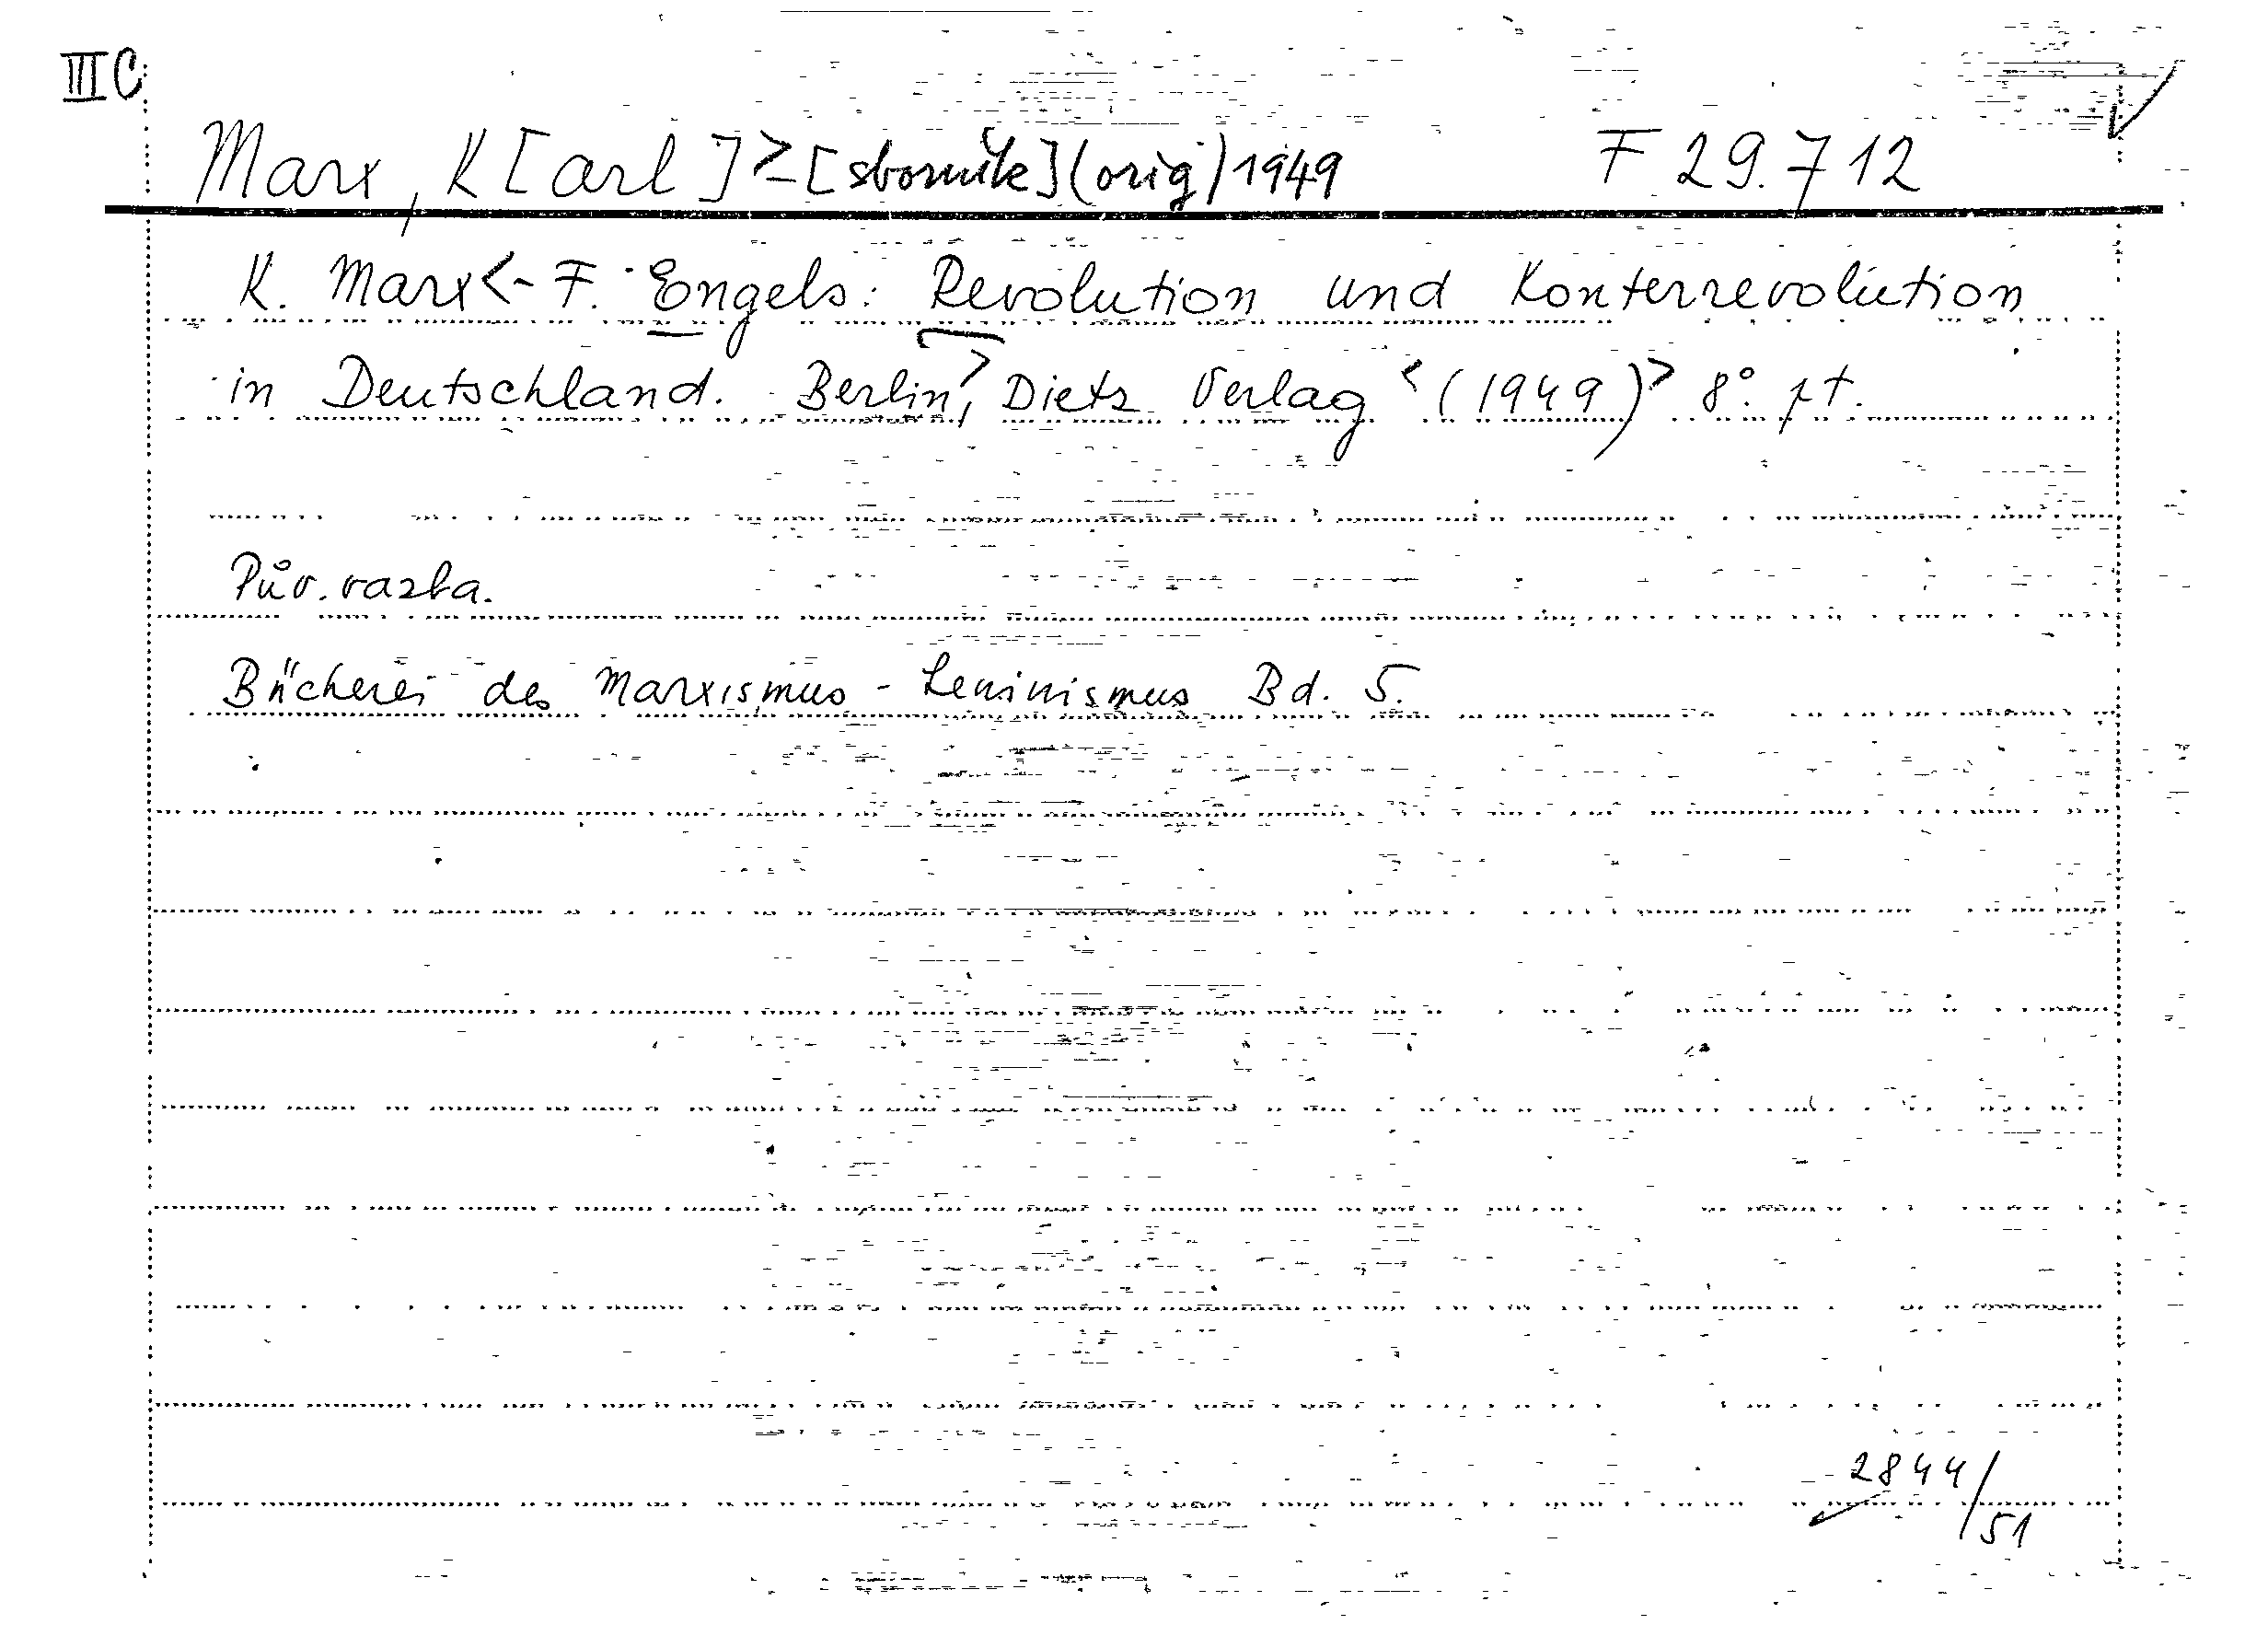 III C
Marx, K[arl] >-[sborník](orig) 1949 F 29.712
K. Marx<- F. Engels: Revolution und Konterrevolution
in Deutschland. Berlin>, Dietz Verlag <(1949)> 8°. pt.
Pův. vazba.
Bücherei des Marxismus - Leninismus Bd. 5.
2844/51